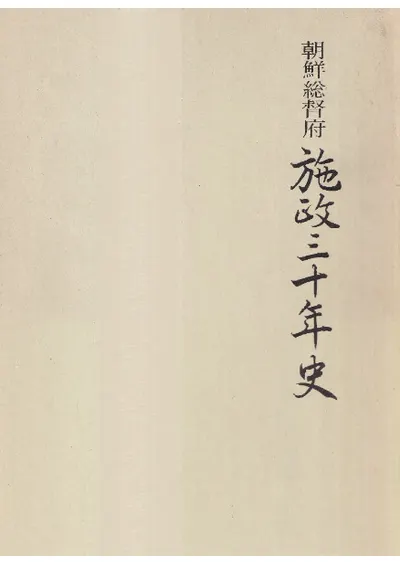 朝鮮総督府
施政三十年史